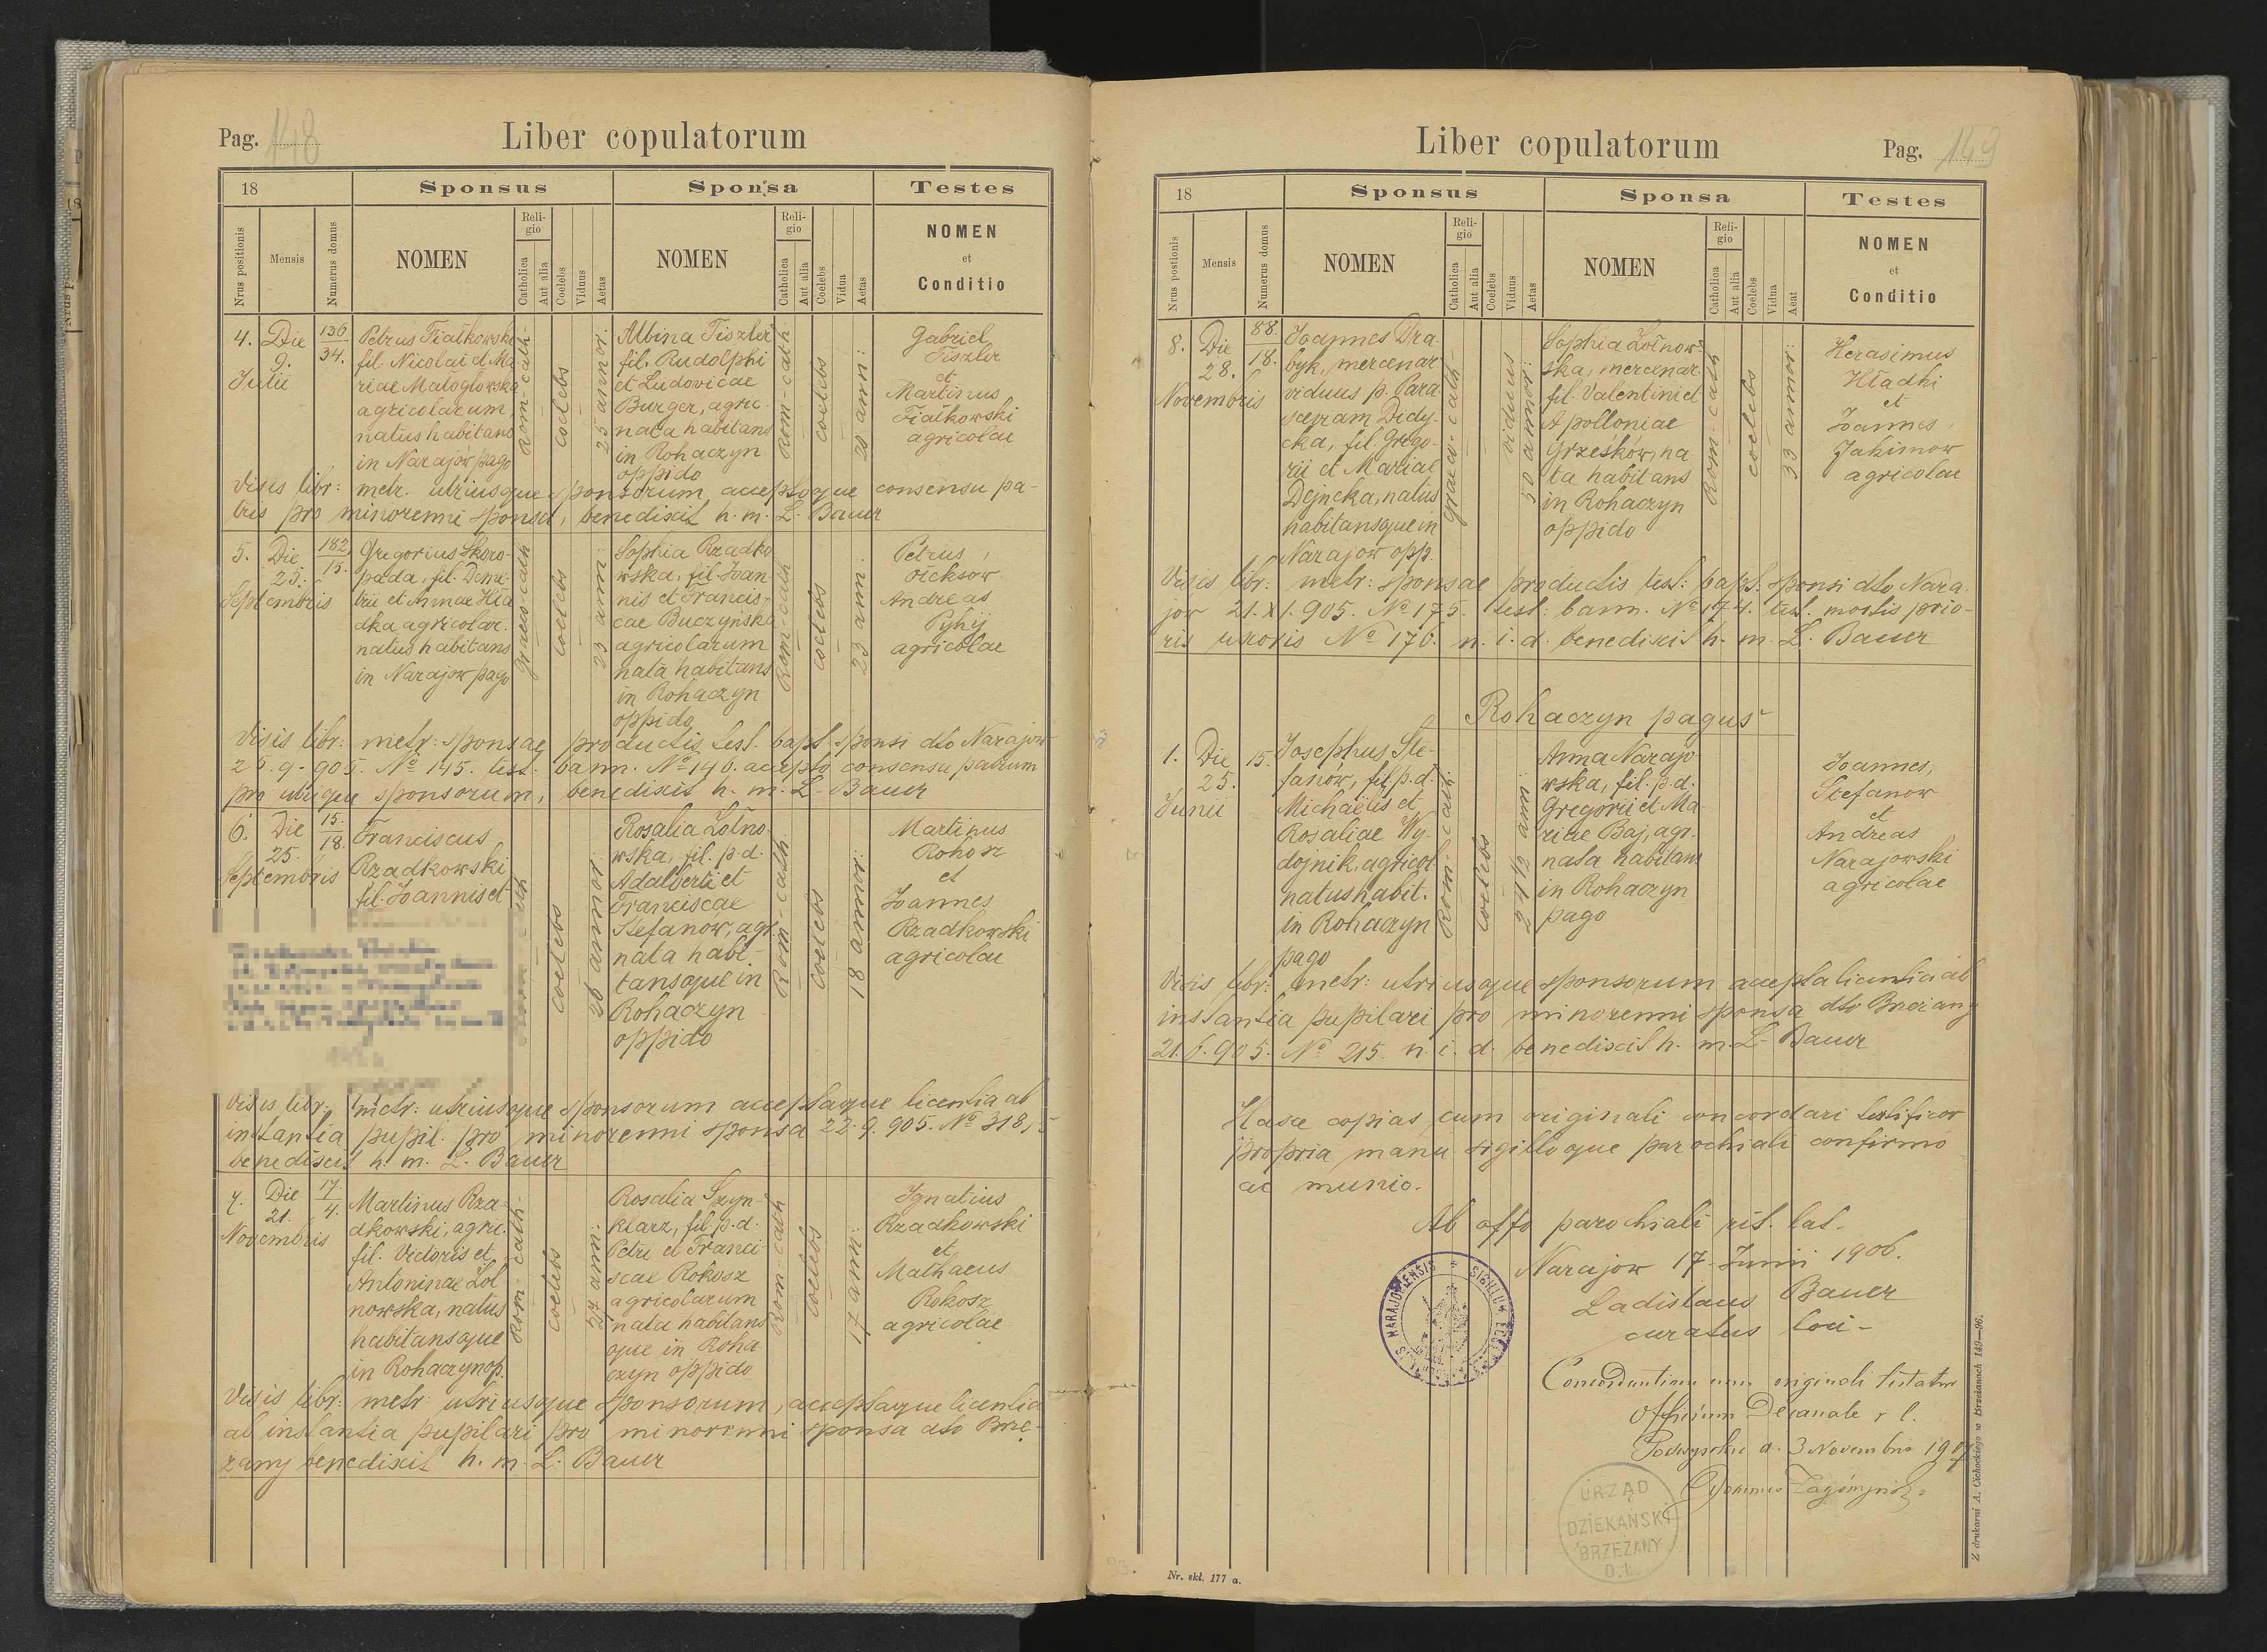 Pag. 148
Liber copulatorum
18
Sponsus
Sponsa
Testes
Nrus positionis
Mensis
Numerus domus
NOMEN
Religio
Catholica
Aut alia
Coelebs
Viduus
Aetas
NOMEN
Religio
Catholica
Aut alia
Coelebs
Vidua
Aetas
NOMEN
et
Conditio
4. Die
9.
Julii
136
34.
Petrus Fiałkowski
fil. Nicolai et Ma
riae Małoglowska
agricolarum,
natus habitans
in Narajow pago
Rom-cath-
coelebs
25 annor:
Albina Tiszler
fil. Rudolphi
et Ludovicae
Burger, agric.
nata habitans
in Rohaczyn
oppido
Rom-cath
coelebs
20 ann:
Gabriel
Tiszler
et
Martinus
Fiałkowski
agricolae
Visis libr: metr. utriusque sponsorum, acceptoque consensu pa-
tris pro minorenni sponsa, benedixit h. m. L. Bauer
5. Die
25.
Septembris
182
15.
Gregorius Skoro-
pada, fil. Deme-
trii et Annae Hla
dka agricolar.
natus habitans
in Narajow pago
graeco-cath
coelebs
23 ann:
Sophia Rzadko
wska, fil. Joan-
nis et Francis-
cae Buczynska
agricolarum
nata habitans
in Rohaczyn
oppido
Rom-cath
coelebs
23 ann:
Petrus
Ołeksow
Andreas
Pyhij
agricolae
Visis libr: metr: sponsae, productis test. bapt. sponsi dto Narajow
25.9.905. No 145. test. bann. No 146. accepto consensu patrum
pro utrique sponsorum, benedixit h. m. L. Bauer
6. Die
25.
Septembris
15.
18.
Franciscus
Rzadkowski
fil. Joannis et
coelebs
26 annor:
Rosalia Żołno
wska, fil. p.d.
Adalberti et
Franciscae
Stefanow, agr.
nata habi-
tansque in
Rohaczyn
oppido
Rom-cath.
coelebs
18 annor:
Martinus
Rohosz
et
Joannes
Rzadkowski
agricolae
Visis libr: metr: utriusque sponsorum acceptaque licentia ab
instantia pupil. pro minorenni sponsa 22.9.905. No 318,
benedixit h. m. L. Bauer
7. Die
21.
Novembris
17.
4.
Martinus Rza-
dkowski, agric.
fil. Victoris et
Antoninae Żoł
nowska, natus
habitansque
in Rohaczyn op.
Rom-cath-
coelebs
27 ann:
Rosalia Szyn-
klarz, fil. p.d.
Petri et Franci
scae Rokosz
agricolarum
nata habitans
que in Roha
czyn oppido
Rom-cath
coelebs
17 ann:
Ignatius
Rzadkowski
et
Mathaeus
Rokosz
agricolae
Visis libr: metr: utriusque sponsorum, acceptaque licentia
ab instantia pupilari pro minorenni sponsa dto Brze-
zany benedixit h. m. L. Bauer
Liber copulatorum
Pag. 149
18
Sponsus
Sponsa
Testes
Nrus postionis
Mensis
Numerus domus
NOMEN
Religio
Catholica
Aut alia
Coelebs
Viduus
Aetas
NOMEN
Religio
Catholica
Aut alia
Coelebs
Vidua
Aeat
NOMEN
et
Conditio
8. Die
28.
Novembris
88.
18.
Joannes Dra
byk, mercenar
viduus p. Para
sceviam Didy-
cka, fil. Grego-
rii et Mariae
Dejneka, natus
habitansque in
Narajow opp.
graeco-cath
viduus
50 annor:
Sophia Żołnow-
ska, mercenar.
fil. Valentini et
Apolloniae
Grześków, na
ta habitans
in Rohaczyn
oppido
Rom-cath
coelebs
33 annor:
Herasimus
Hładhi
et
Joannes
Jahimow
agricolae
Visis libr: metr: sponsae productis test: bapt. sponsi dto Nara
jow 21.XI.905. No 175. test: bann. No 174. test. mortis prio-
ris uxoris No 176. n. i. d. benedixit h. m. L. Bauer
Rohaczyn pagus
1. Die
25.
Junii
15.
Josephus Ste-
fanów, fil. p.d.
Michaelis et
Rosaliae Wy-
dojnik, agricol
natus habit.
in Rohaczyn
pago
Rom-cath.
coelebs
24 1/2 ann:
Anna Narajo
wska, fil. p.d.
Gregorii et Ma
riae Baj, agr.
nata habitans
in Rohaczyn
pago
Joannes
Stefanow
et
Andreas
Narajowski
agricolae
Visis libr: metr: utriusque sponsorum accepta licentia ab
instantia pupilari pro minorenni sponsa dto Brzezany
21.6.905. No 215. n. i. d. benedixit h. m. L. Bauer
Hasce copias cum originali concordari testificor
propria manu sigilloque parochiali confirmo
ac munio.
Ab offo parochiali rit. lat.
Narajow 17 Junii 1906.
Ladislaus Bauer
curatus loci
Concordantiam cum originali testatur
Officium Decanale r. l.
Podwysokie d. 3 Novembris 1907
URZĄD
DZIEKAŃSKI
BRZEŻANY
O.Ł.
Nr. skł. 177 a.
Z drukarni A. Cichockiego w Brzeżanach 149—96.